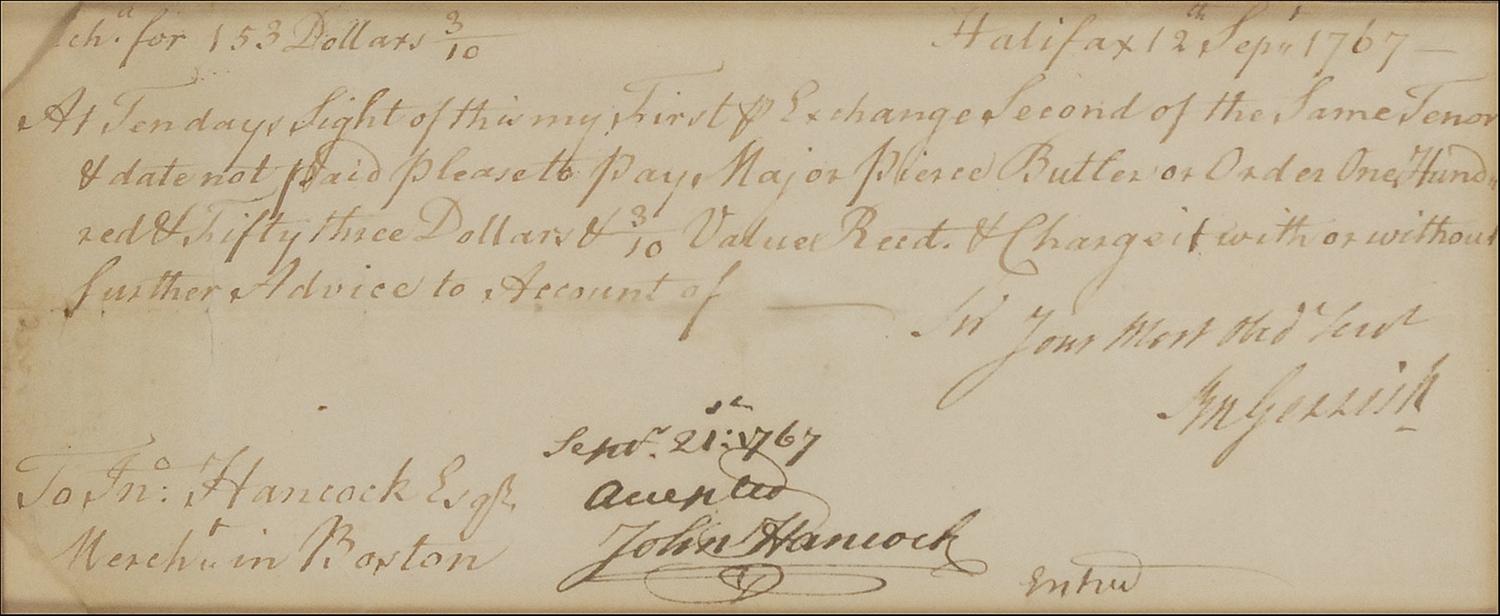 ch.ᵃ for 153 Dollars 3/10 Halifax 12th Sepr 1767 —
At Ten days Sight of this my First & Exchange Second of the Same Tenor
& date not paid please to pay Major Pierce Butler or Order One Hund-
red & Fifty three Dollars & 3/10 Value Recd. & Charge it with or without
further Advice to Account of
Sir Your Most Obdᵗ Servᵗ
Jnᵒ Gerrish
Sepʳ. 21ˢᵗ: 1767
To Jnᵒ: Hancock Esqʳ.
Accepted
Merchᵗ in Boston
John Hancock
Entrd